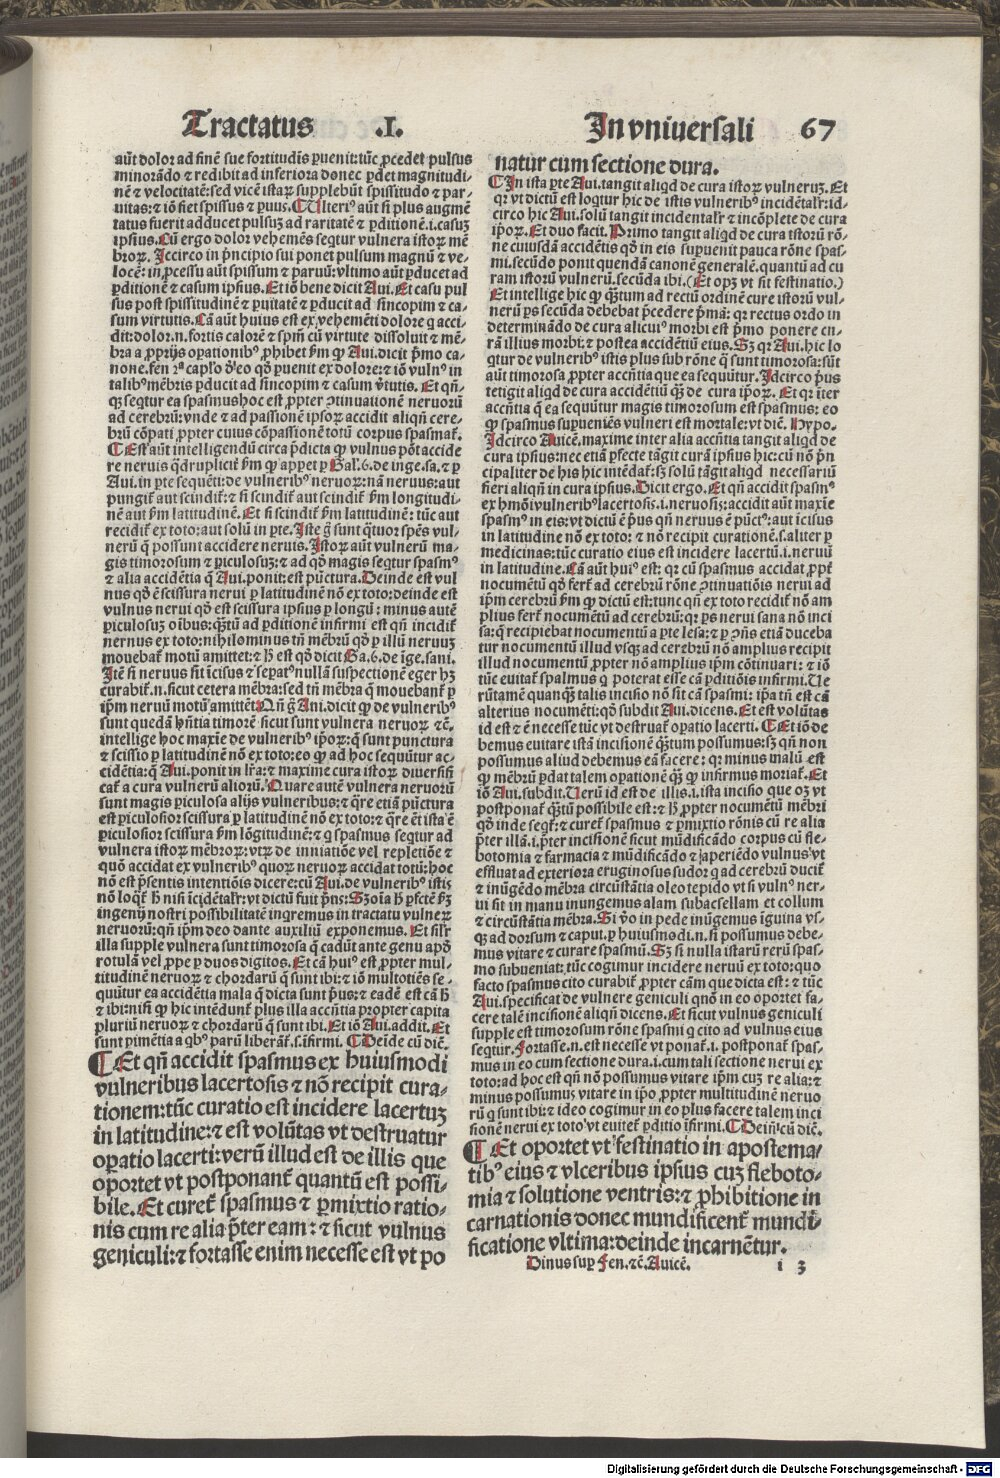 Tractatus .I. In vniuersali 67
aūt dolor ad finē sue fortitudīs ꝑuenit: tūc ꝓcedet pulsus
minorādo ⁊ redibit ad inferiora donec ꝑdet magnitudi-
nē ⁊ velocitatē: sed vicē istaꝝ supplebūt spissitudo ⁊ par-
uitas: ⁊ iō fiet spissus ⁊ ꝑuus. Ulteriꝰ aūt si plus augmē
tatus fuerit adducet pulsuȝ ad raritatē ⁊ ꝑditionē .i. casuȝ
ipsius. Cū ergo dolor vehemēs seqtur vulnera istoꝝ mē
broꝝ. Jccirco in pͥncipio sui ponet pulsum magnū ⁊ ve-
locē: in ꝓcessu aūt spissum ⁊ paruū: vltimo aūt ꝑducet ad
ꝑditionē ⁊ casum ipsius. Et iō bene dicit Aui. Et casu pul
sus post spissitudinē ⁊ ꝑuitatē ⁊ ꝑducit ad sincopim ⁊ ca-
sum virtutis. Cā aūt huius est ex vehemēti dolore q acci
dit: dolor .n. fortis calorē ⁊ spm̄ cū virtute dissoluit ⁊ mē-
bra a ꝓprijs oꝑationibꝰ ꝓhibet
talibꝰ mēbris ꝑducit ad sincopim ⁊ casum v̄tutis. Et qn̄-
qȝ seqtur ea spasmus hoc est ꝓpter ꝯtinuationē neruorū
ad cerebrū: vnde ⁊ ad passionē ipsoꝝ accidit aliqn̄ cere-
brū cōpati ꝓpter cuius cōpassionē totū corpus spasmat̄.
Est aūt intelligendū circa p̄dicta ꝙ vulnus pōt accide
Aui. in ꝑte sequēti: de vulneribꝰ neruoꝝ: nā neruus: aut
recidit̄ ex toto: aut solū in ꝑte. Iste g̊ sunt q̄tuor spēs vul-
nerū q̄ possunt accidere neruis. Istoꝝ aūt vulnerū ma-
gis timorosum ⁊ ꝑiculosuȝ: ⁊ ad qd̄ magis seqtur spasmꝰ
⁊ alia accidētia q̄ Aui. ponit: est pūctura. Deinde est vul
nus qd̄ ē scissura nerui ꝑ latitudinē nō ex toto: deinde est
vulnus nerui qd̄ est scissura ipsius ꝑ longū: minus autē
ꝑiculosuȝ oībus: q̄tū ad ꝑditionē infirmi est qn̄ incidit̄
neruus ex toto: nihilominus tn̄ mēbrū qd̄ ꝑ illū neruuȝ
mouebat̄ motū amittet: ⁊ h̄ est qd̄ dicit Ga. 6. de īge. sani.
ipm̄ neruū motū amittēt. Qn̄ g̊ Aui. dicit ꝙ de vulneribꝰ
sunt quedā hn̄tia timorē sicut sunt vulnera neruoꝝ ⁊c̄.
intellige hoc maxīe de vulneribꝰ ipoꝝ: q̄ sunt punctura
⁊ scissio ꝑ latitudinē nō ex toto: eo ꝙ ad hoc sequūtur ac-
cat̄ a cura vulnerū aliorū. Quare autē vulnera neruorū
sunt magis ꝑiculosa alijs vulneribus: ⁊ q̄re etiā pūctura
est ꝑiculosior scissura ꝑ latitudinē nō ex toto: ⁊ q̄re ēt ista ē
vulnera istoꝝ mēbroꝝ: vtꝝ de inniatiōe vel repletiōe ⁊
quō accidat ex vulneribꝰ quoꝝ neruoꝝ accidat totū: hoc
nō est p̄sentis intentiōis dicere: cū Aui. de vulneribꝰ istis
ingenij nostri possibilitatē inqremus in tractatu vulneꝝ
neruorū: qn̄ ipm̄ deo dante auxiliū exponemus. Et sil̄r
illa supple vulnera sunt timorosa q̄ cadūt ante genu apd̄
rotulā vel ꝓpe ꝑ duos digitos. Et cā huiꝰ est ꝓpter mul-
titudinē neruoꝝ ⁊ chordarū q̄ sunt ibi: ⁊ iō multotiēs se-
quūtur ea accidētia mala q̄ dicta sunt p̄us: ⁊ eadē est cā h̄
⁊ ibi: nisi ꝙ hic intēdunt̄ plus illa accn̄tia propter capita
pluriū neruoꝝ ⁊ chordarū q̄ sunt ibi. Et iō Aui. addit. Et
sunt ꝑimētia a qbꝰ parū liberāt̄ .s. īfirmi. Deīde cū diē.
Et qn̄ accidit spasmus ex huiusmodi
vulneribus lacertosis ⁊ nō recipit cura-
tionem: tūc curatio est incidere lacertuȝ
in latitudine: ⁊ est volūtas vt destruatur
oꝑatio lacerti: verū illud est de illis que
oportet vt postponant̄ quantū est possi-
bile. Et curet̄ spasmus ⁊ ꝑmixtio ratio-
nis cum re alia p̄ter eam: ⁊ sicut vulnus
geniculi: ⁊ fortasse enim necesse est vt po
natur cum sectione dura.
In ista ꝑte Aui. tangit aliqd de cura istoꝝ vulneruȝ. Et
qꝛ vt dictū est loqtur hic de istis vulneribꝰ incidētal̄r: id-
circo hic Aui. solū tangit incidental̄r ⁊ incōplete de cura
ipoꝝ. Et duo facit. Primo tangit aliqd de cura istorū rō-
ne cuiusdā accidētis qd̄ in eis supuenit pauca rōne spas-
mi. secūdo ponit quendā canonē generalē. quantū ad cu
ram istorū vulnerū. secūda ibi. (Et opȝ vt sit festinatio.)
Et intellige hic ꝙ q̄tum ad rectū ordinē cure istorū vul-
nerū ꝑs secūda debebat p̄cedere p̄mā: qꝛ rectus ordo in
determināndo de cura alicuiꝰ morbi est p̄mo ponere cu-
rā illius morbi: ⁊ postea accidētiū eius. Sȝ qꝛ Aui. hic lo
qtur de vulneribꝰ istis plus sub rōne q̄ sunt timorosa: sūt
aūt timorosa ꝓpter accn̄tia que ea sequūtur. Idcirco p̄us
tetigit aliqd de cura accidētiū q̄ de cura ipoꝝ. Et qꝛ iter
accn̄tia q̄ ea sequūtur magis timorosum est spasmus: eo
ꝙ spasmus supueniēs vulneri est mortale: vt diē. Hypo.
Idcirco Auicē. maxime inter alia accn̄tia tangit aliqd de
cura ipsius: nec etiā ꝑfecte tāgit curā ipsius hic: cū nō p̄n
cipaliter de his hic intēdat̄: sȝ solū tāgit aliqd necessariū
fieri aliqn̄ in cura ipsius. Dicit ergo. Et qn̄ accidit spasmꝰ
ex hmōi vulneribꝰ lacertosis .i. neruosis: accidit aūt maxīe
spasmꝰ in eis: vt dictū ē p̄us qn̄ neruus ē pūctꝰ: aut icisus
in latitudine nō ex toto: ⁊ nō recipit curationē .s. aliter ꝑ
medicinas: tūc curatio eius est incidere lacertū .i. neruū
in latitudine. Cā aūt huiꝰ est: qꝛ cū spasmus accidat ꝓpt̄
nocumētū qd̄ fert̄ ad cerebrū rōne ꝯtinuatiōis nerui ad
plius fert̄ nocumētū ad cerebrū: qꝛ ꝑs nerui sana nō inci
sa: q̄ recipiebat nocumentū a ꝑte lesa: ⁊ ꝑ ꝯn̄s etiā duceba
tur nocumentū illud vsqȝ ad cerebrū nō amplius recipit
illud nocumentū ꝓpter nō amplius ipm̄ cōtinuari: ⁊ iō
tūc euitat̄ spasmus q poterat esse cā ꝑditiōis infirmi. Ue
rūtamē quanqȝ talis incisio nō sit cā spasmi: ipa tn̄ est cā
alterius nocumēti: qd̄ subdit Aui. dicens. Et est volūtas
id est ⁊ ē necesse tūc vt destruat̄ oꝑatio lacerti. Et iō de
bemus euitare istā incisionē q̄tum possumus: sȝ qn̄ non
possumus aliud debemus eā facere: qꝛ minus malū est
ꝙ mēbrū ꝑdat talem oꝑationē q̄ ꝙ infirmus moriat̄. Et
iō Aui. subdit. Uerū id est de illis .i. ista incisio que oȝ vt
postponat̄ q̄tū possibile est: ⁊ h̄ ꝓpter nocumētū mēbri
qd̄ inde seqt̄: ⁊ curet̄ spasmus ⁊ ꝑmixtio rōnis cū re alia
p̄ter illā .i. p̄ter incisionē sicut mūdificādo corpus cū fle-
botomia ⁊ farmacia ⁊ mūdificādo ⁊ aperiēdo vulnus vt
effluat ad exteriora eruginosus sudor q ad cerebrū ducit̄
⁊ inūgēdo mēbra circūstātia oleo tepido vt si vulnꝰ ner-
ui sit in manu inungemus alam subacsellam et collum
⁊ circūstātia mēbra. Si v̄o in pede inūgemus īguina vs-
qȝ ad dorsum ⁊ caput. ꝑ huiusmodi .n. si possumus debe-
mus vitare ⁊ curare spasmū. Sȝ si nulla istarū rerū spas-
mo subueniat: tūc cogimur incidere neruū ex toto: quo
facto spasmus cito curabit̄ ꝓpter cām que dicta est: ⁊ tūc
Aui. specificat de vulnere geniculi quō in eo oportet fa-
cere talē incisionē aliqn̄ dicens. Et sicut vulnus geniculi
supple est timorosum rōne spasmi q cito ad vulnus eius
seqtur. Fortasse .n. est necesse vt ponat̄ .i. postponat̄ spas-
mus in eo cum sectione dura .i. cum tali sectione nerui ex
toto: ad hoc est qn̄ nō possumus vitare ipm̄ cuȝ re alia: ⁊
minus possumus vitare in ipo ꝓpter multitudinē neruo
rū q sunt ibi: ⁊ ideo cogimur in eo plus facere talem inci
sionē nerui ex toto vt euitet̄ ꝑditio īfirmi. Dein̄ cū diē.
Et oportet vt festinatio in apostema-
tibꝰ eius ⁊ vlceribus ipsius cuȝ fleboto-
mia ⁊ solutione ventris: ⁊ ꝓhibitione in
carnationis donec mundificent̄ mundi-
ficatione vltima: deinde incarnētur.
Dinus suꝑ Fen. ⁊c̄. Auicē. i 3
Digitalisierung gefördert durch die Deutsche Forschungsgemeinschaft - DFG